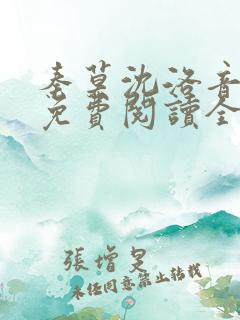 秦墓沈洛音
免費閱讀全
張增旻
未经同意禁止转载